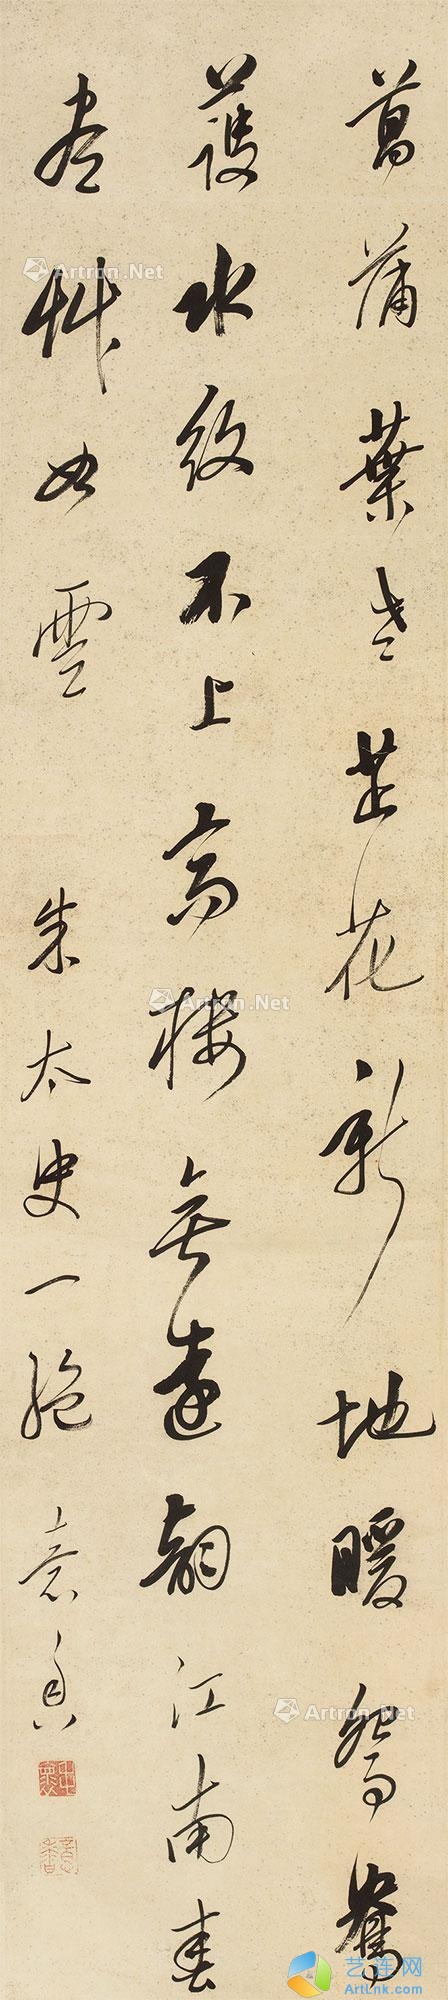 菖蒲葉老芷花新地暖鴛鴦
護水紋不上高樓無遠韻江南春
盡艸如雲 朱太史一絕
Artron.Net
Artron.Net
Artron.Net
Artron.Net
Artron.Net
艺连网
ArtLnk.com